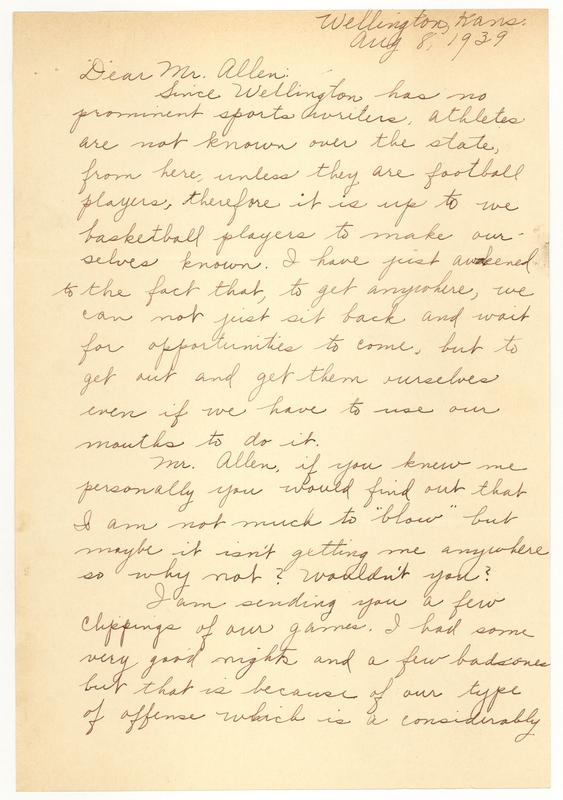 Wellington, Kans.
Aug 8, 1939
Dear Mr. Allen:
Since Wellington has no
prominent sports writers, athletes
are not known over the state,
from here, unless they are football
players, therefore it is up to we
basketball players to make our-
selves known. I have just awakened
to the fact that, to get anywhere, we
can not just sit back and wait
for opportunities to come, but to
get out and get them ourselves
even if we have to use our
mouths to do it.
Mr. Allen, if you knew me
personally you would find out that
I am not much to "blow" but
maybe it isn't getting me anywhere
so why not? Wouldn't you?
I am sending you a few
clippings of our games. I had some
very good nights and a few bad ones
but that is because of our type
of offense which is a considerably